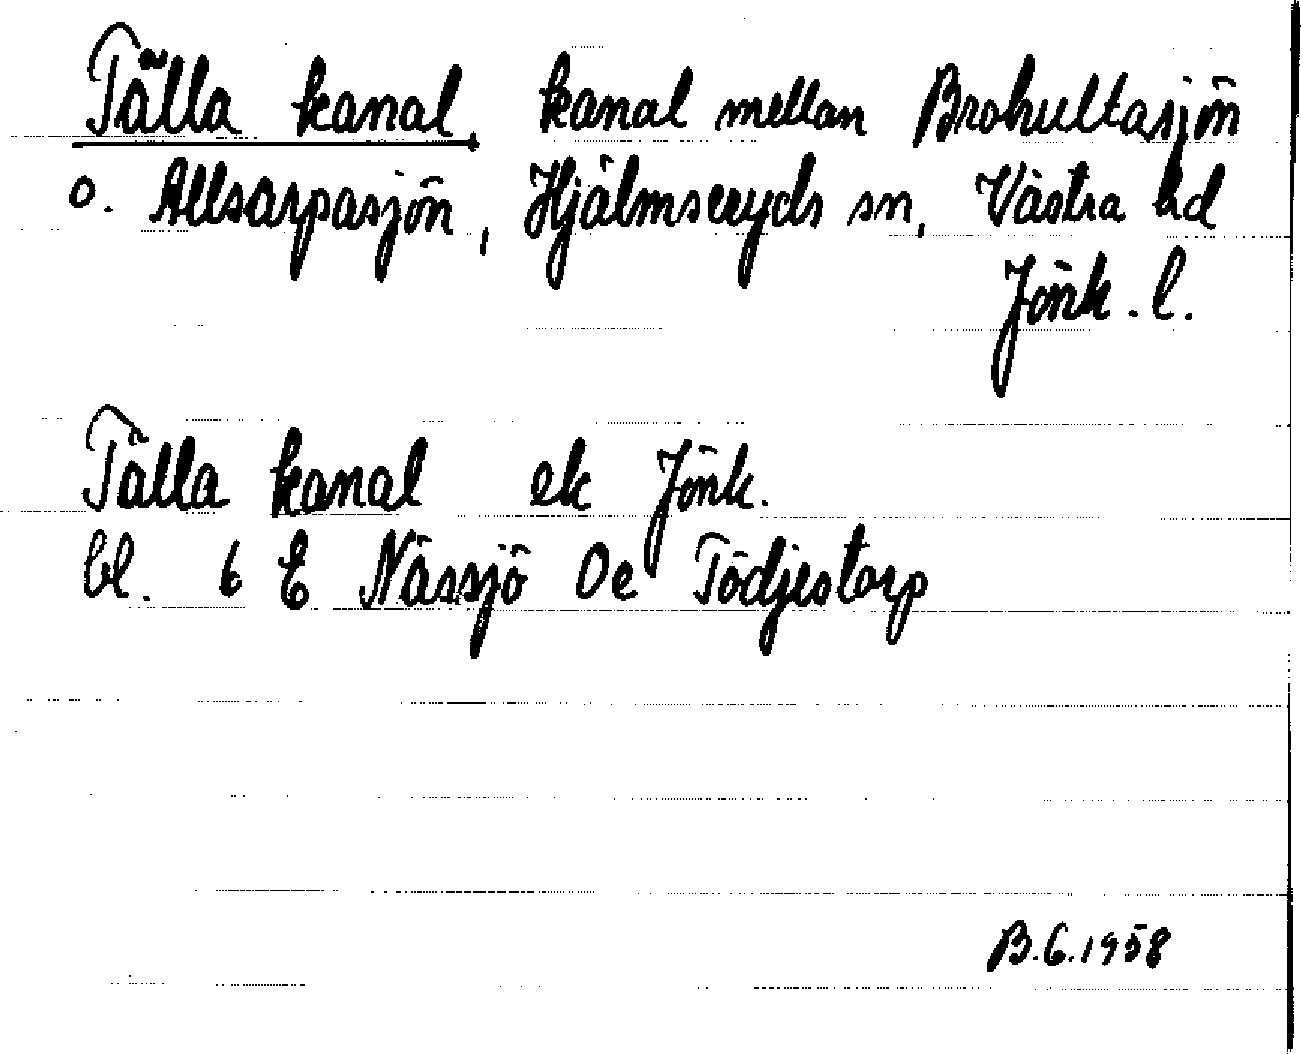 Tälla kanal, kanal mellan Brohultasjön
o. Allsarpasjön, Hjälmseryds sn, Västra hd
Jönk. l.
Tälla kanal ek Jönk.
bl. 6 E Nässjö Oe Tödjestorp
B.G.1958